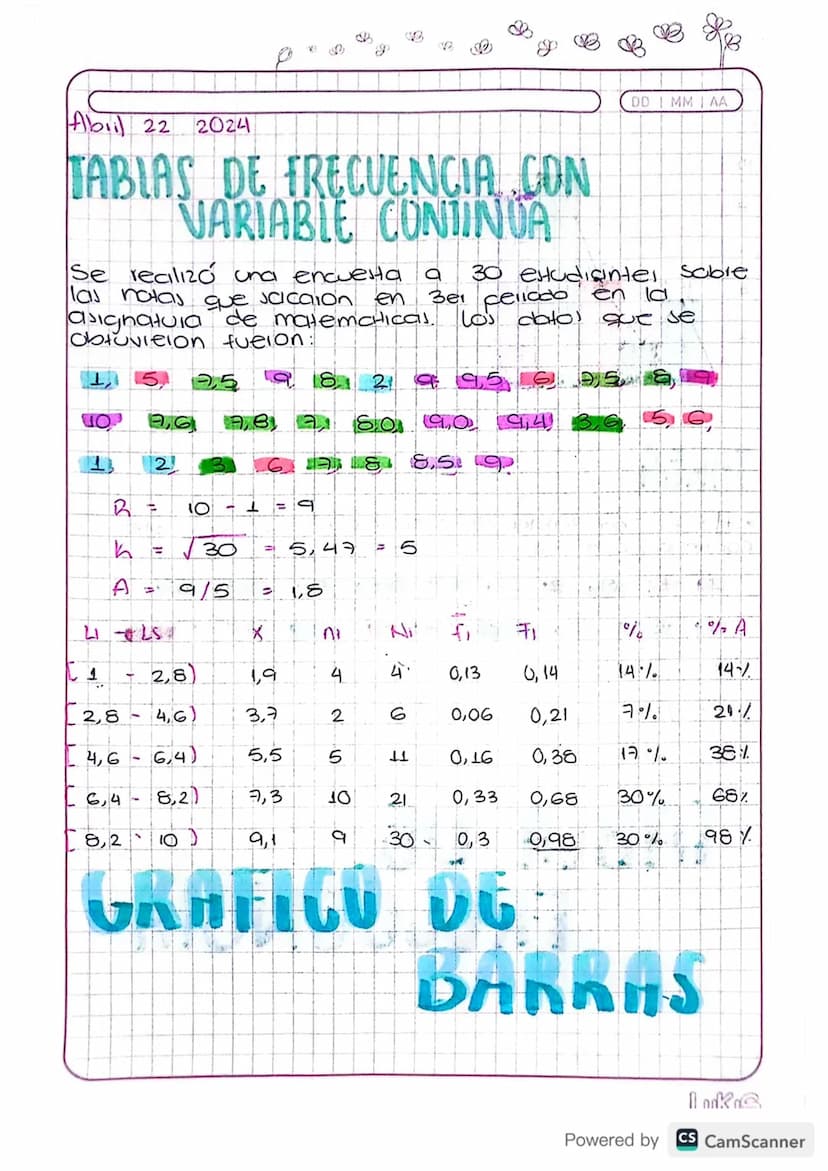 DD | MM | AA
Abril 22 2024
TABLAS DE FRECUENCIA CON
VARIABLE CONTINUA
Se realizó una encuesta a 30 estudiantes sobre
las notas que sacaron en 3er periodo en la
asignatura de matematicas. Los datos que se
obtuvieron fueron:
1, 5, 7,5 9, 8, 2, 9, 9,5, 6, 7,5, 8, 9
10, 7,6, 7,8, 7, 8.0, 9,0, 9,4, 3,6, 5, 6,
1, 2, 3 6, 7, 8 8,5, 9.
R = 10 - 1 = 9
K = √30 = 5,47 = 5
A = 9/5 = 1,8
Li - Ls X ni Ni fi Fi % % A
[ 1 - 2,8) 1,9 4 4 0,13 0,14 14% 14%
[ 2,8 - 4,6) 3,7 2 6 0,06 0,21 7% 21%
[ 4,6 - 6,4) 5,5 5 11 0,16 0,38 17% 38%
[ 6,4 - 8,2) 7,3 10 21 0,33 0,68 30% 68%
[ 8,2 - 10 ) 9,1 9 30 0,3 0,98 30% 98%
GRAFICO DE
BARRAS
Powered by CS CamScanner